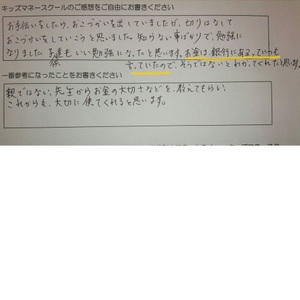 キッズマネースクールのご感想をご自由にお書きください
お手伝いをしたり、おこづかいを出していましたが、切りはなして
おこづかいをしていこうと思いました。知らない事ばかりで、勉強に
なりました。娘もいい勉強になったと思います。お金は銀行にあるっていつも
言っていたので、そうではないとわかってくれたと思います
一番参考になったことをお書きください
親ではない、先生からお金の大切さなどを、教えてもらい、
これからも、大切に使ってくれると思います。